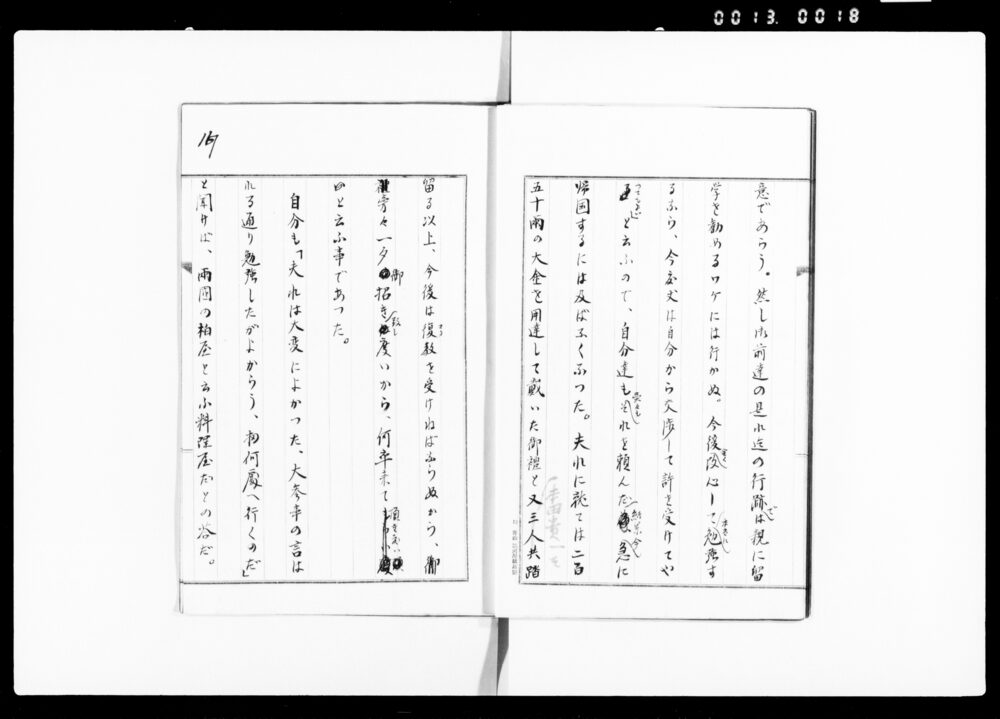 0013.0018
意であらう。然しお前達の是れ迄の行跡では親に留
学を勧めるワケには行かぬ。今後改心して勉強す
るなら、今度丈は自分から交渉して許を受けてや
と云ふので、自分達も夫れを頼んだ 急に
帰国するには及ばなくなつた。夫れに就ては二百
五十両の大金を用達して戴いた御禮と又三人共踏
留る以上、今後は復教を受けねばならぬから、御
旁々一夕御招き致し度いから、何卒来て
のと云ふ事であつた。
自分も「夫れは大変によかつた、大参事の言は
れる通り勉強したがよからう、扨何處へ行くのだ」
と聞けば、両国の柏屋と云ふ料理屋だとの答だ。